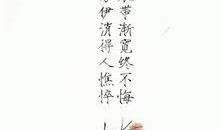 带渐宽终不悔
伊消得人憔悴